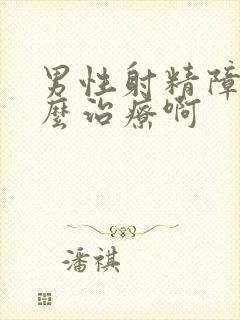 男性射精障
麼治療啊
潘祺